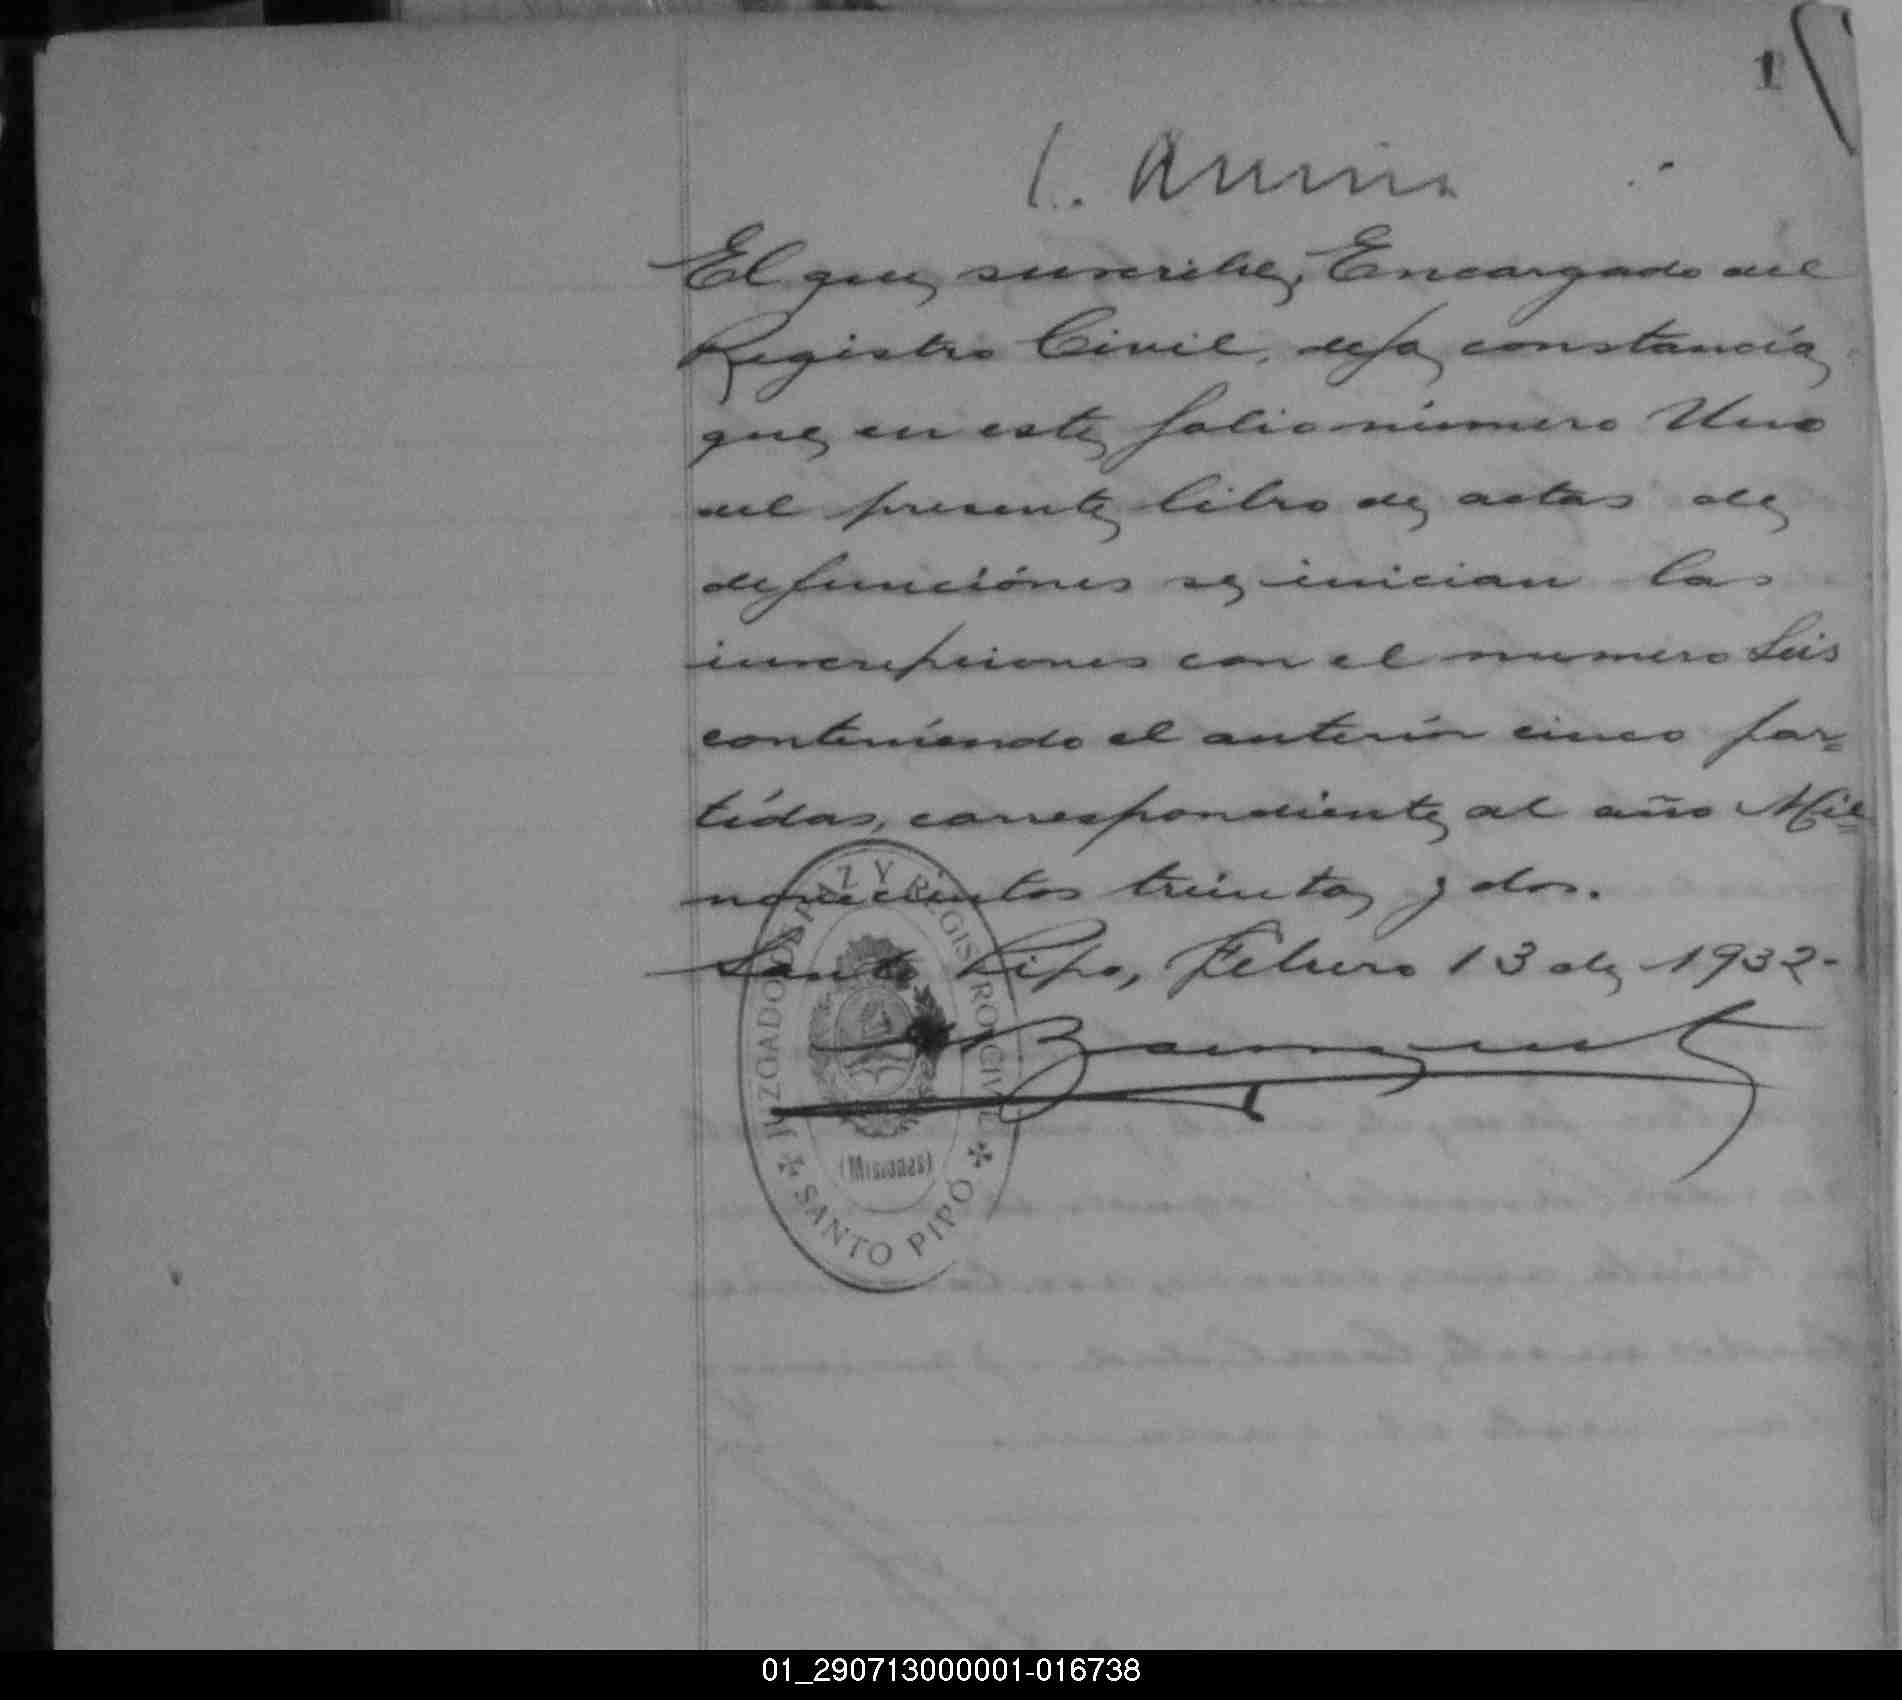 1
El que suscribe, Encargado del
Registro Civil, deja constancia
que en este folio número Uno
del presente libro de actas de
defunciónes se inician las
inscripciones con el numero Seis
conteniendo el anterior cinco par-
tidas, correspondiente al año Mil
novecientos treinta y dos.
Santo Pipo, Febrero 13 de 1932-
JUZGADO DE PAZ Y REGISTRO CIVIL
(Misiones)
SANTO PIPO
01_290713000001-016738